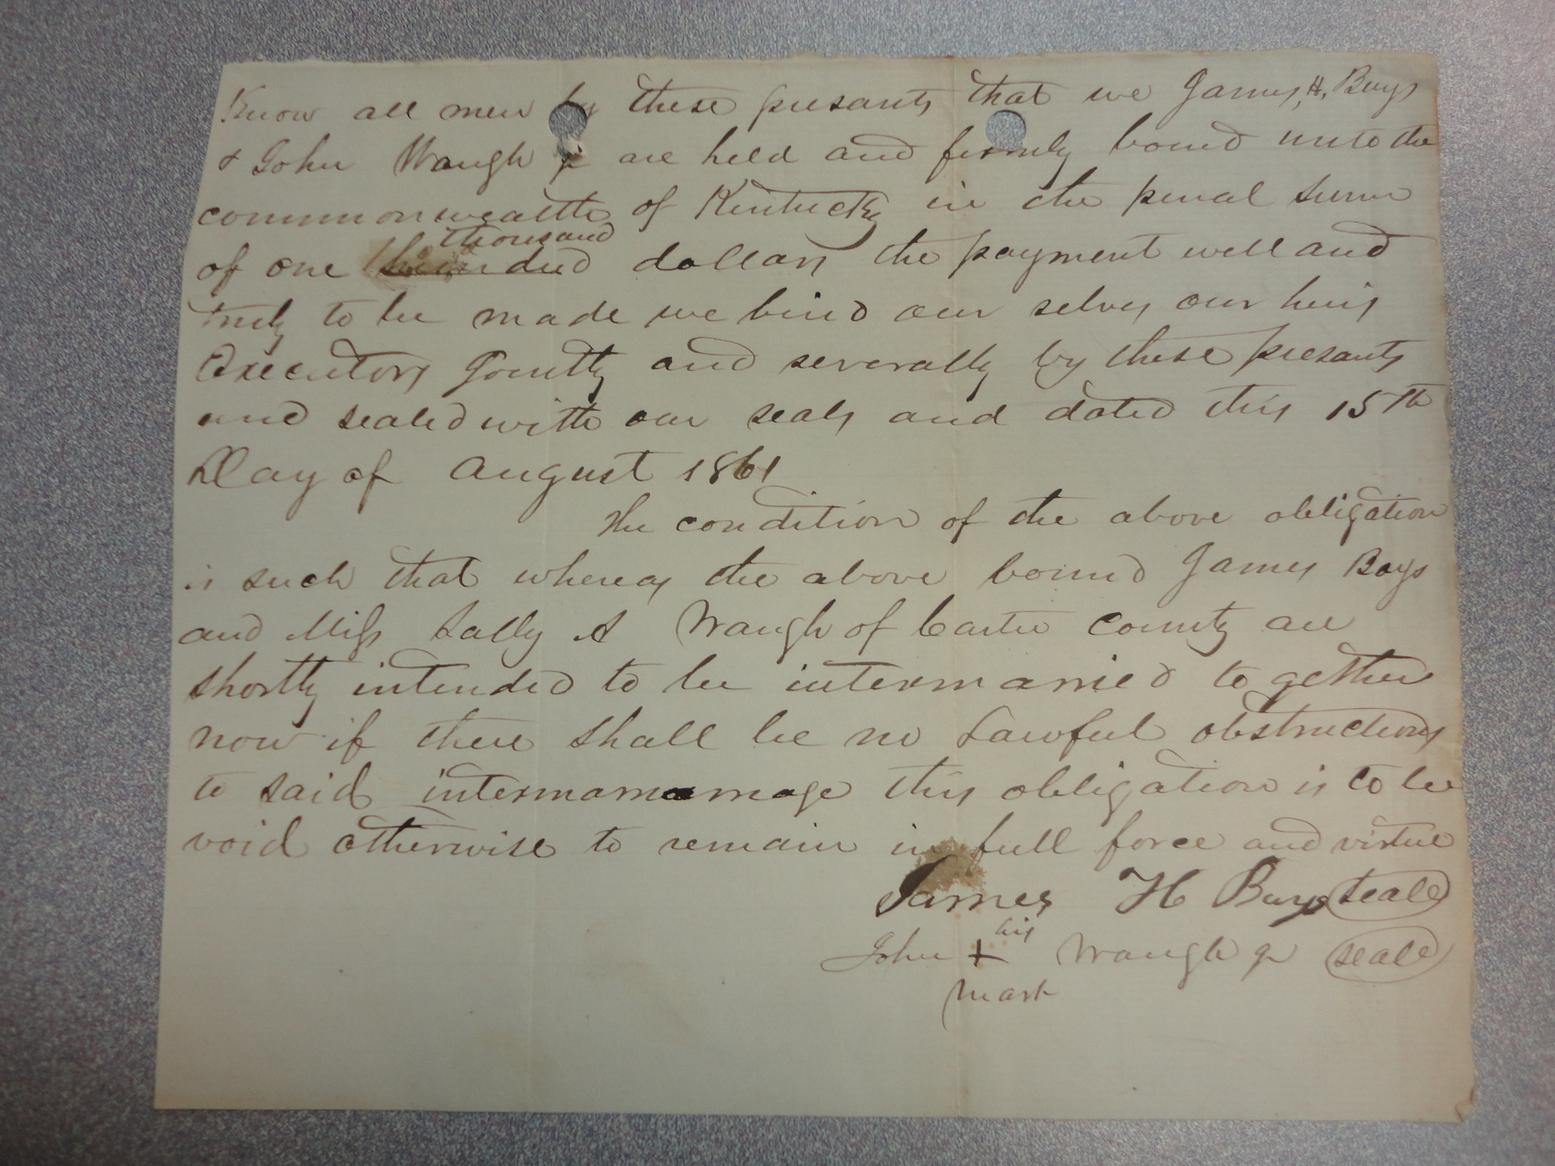 Know all men by these presants that we James, H, Buys
& John Waugh Jr are held and firmly bound unto the
commonwealth of Kentucky in the penal sum
thousand
of one hundred dollars the payment well and
truly to be made we bind our selves our heirs
Executors Jointly and severally by these presants
and sealed with our seals and dated this 15th
Day of August 1861
the condition of the above obligation
is such that whereas the above bound James Bays
and Miss Sally A Waugh of Carter county are
shortly intended to be intermarried to gether
now if there shall be no Lawful obstructions
to said intermarriage this obligation is to be
void otherwise to remain in full force and virtue
James H Buys seale
his
John + Waugh jr seale
mark